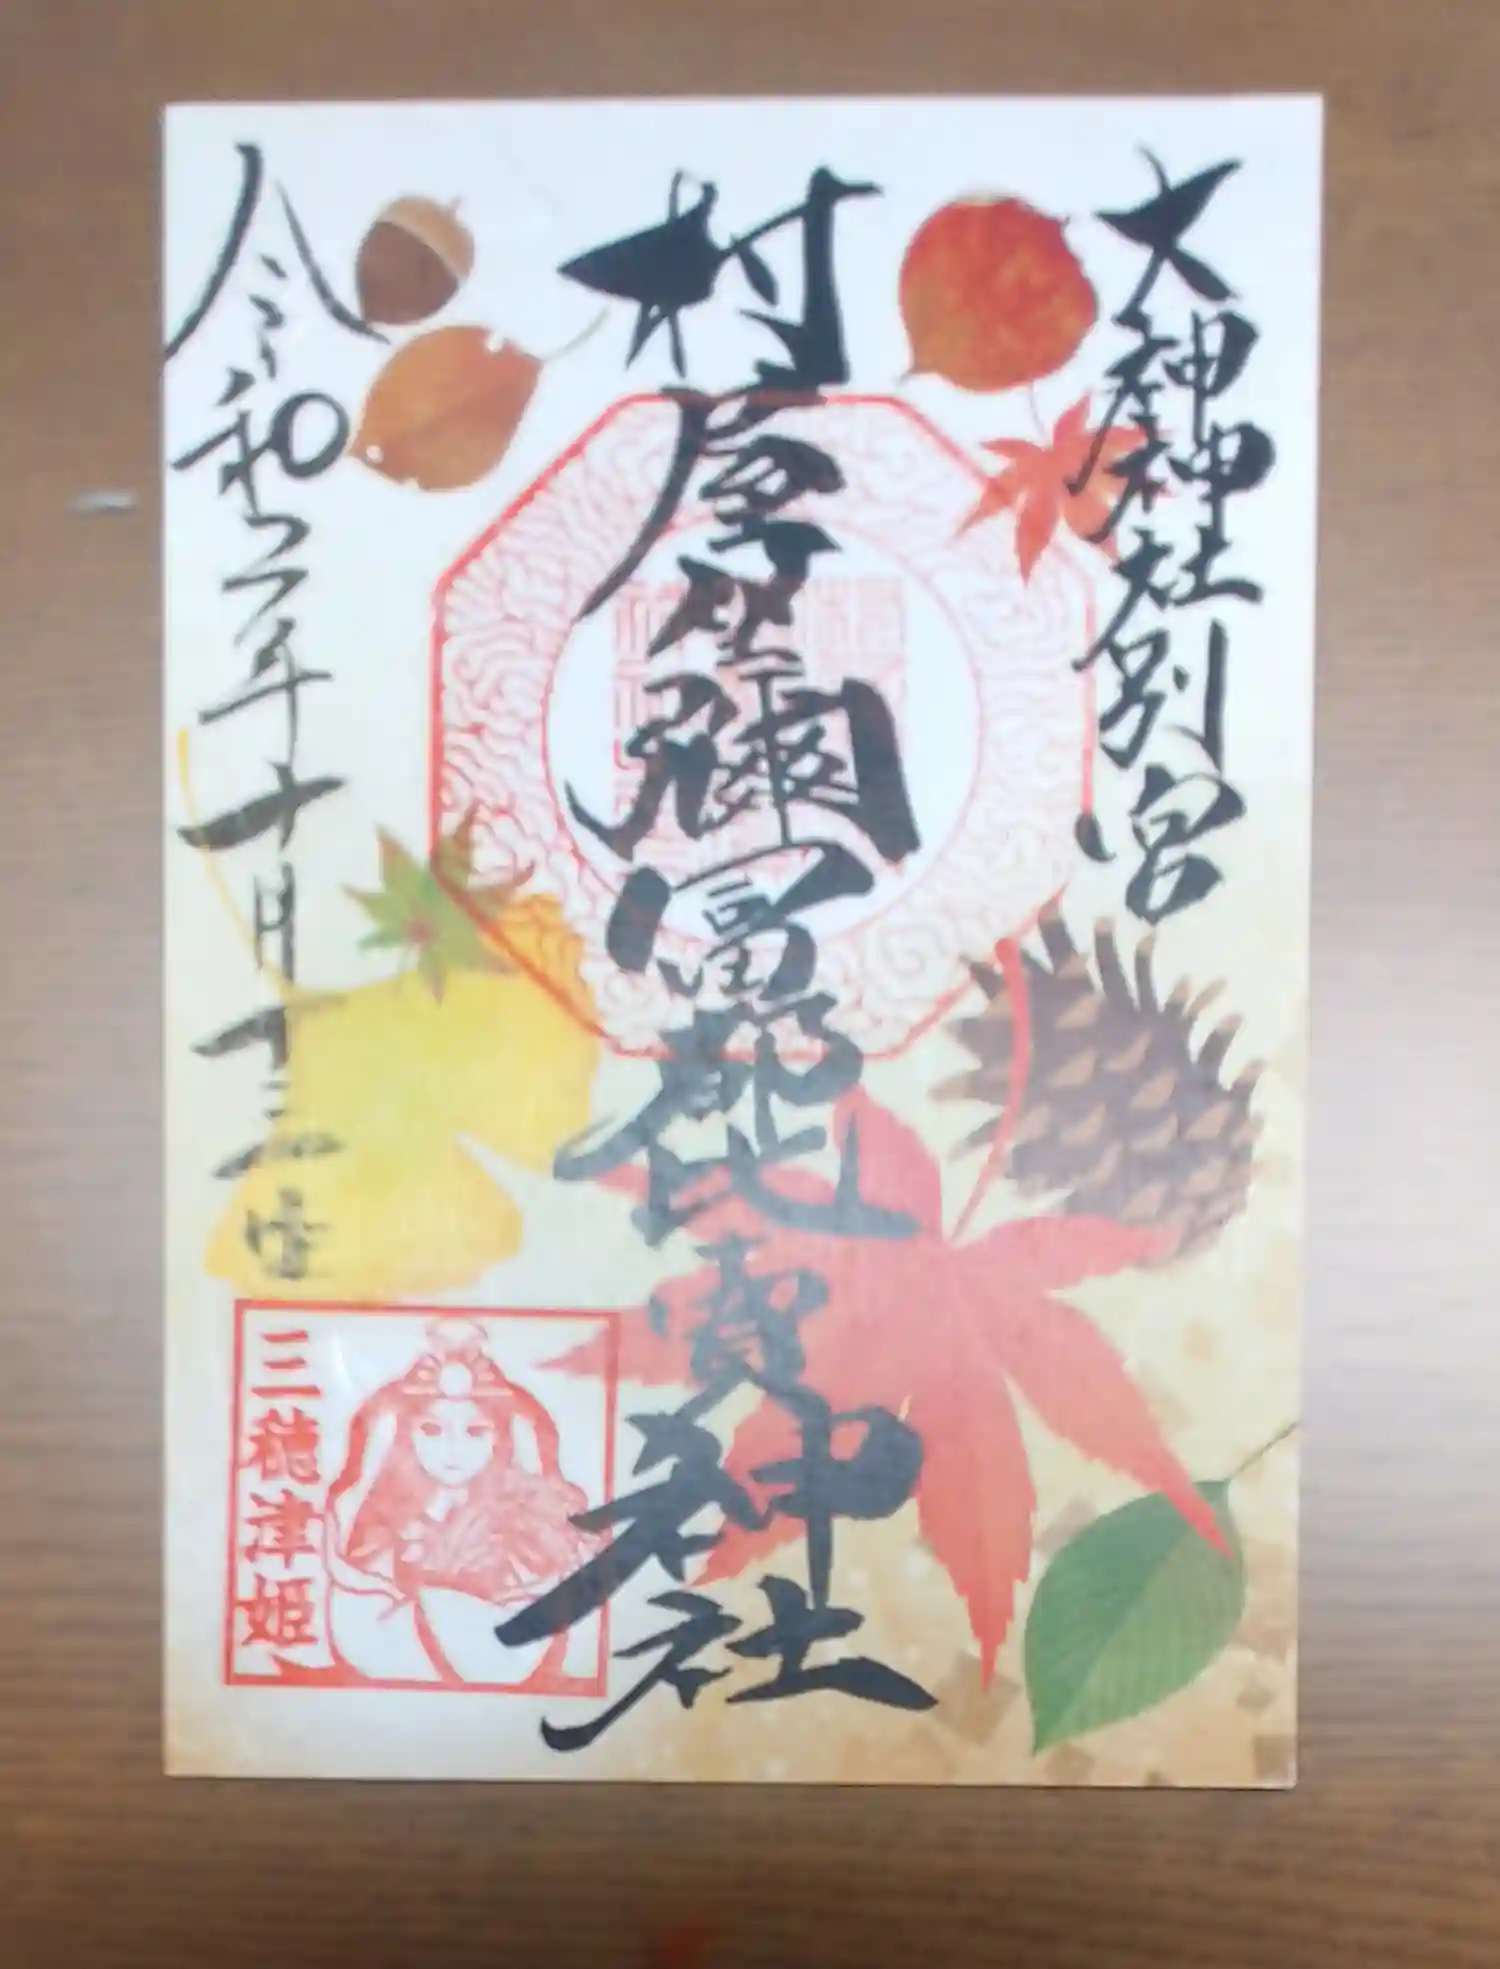 大神神社別宮
村屋坐彌冨都比賣神社
令和二年十月十二日
三穂津姫